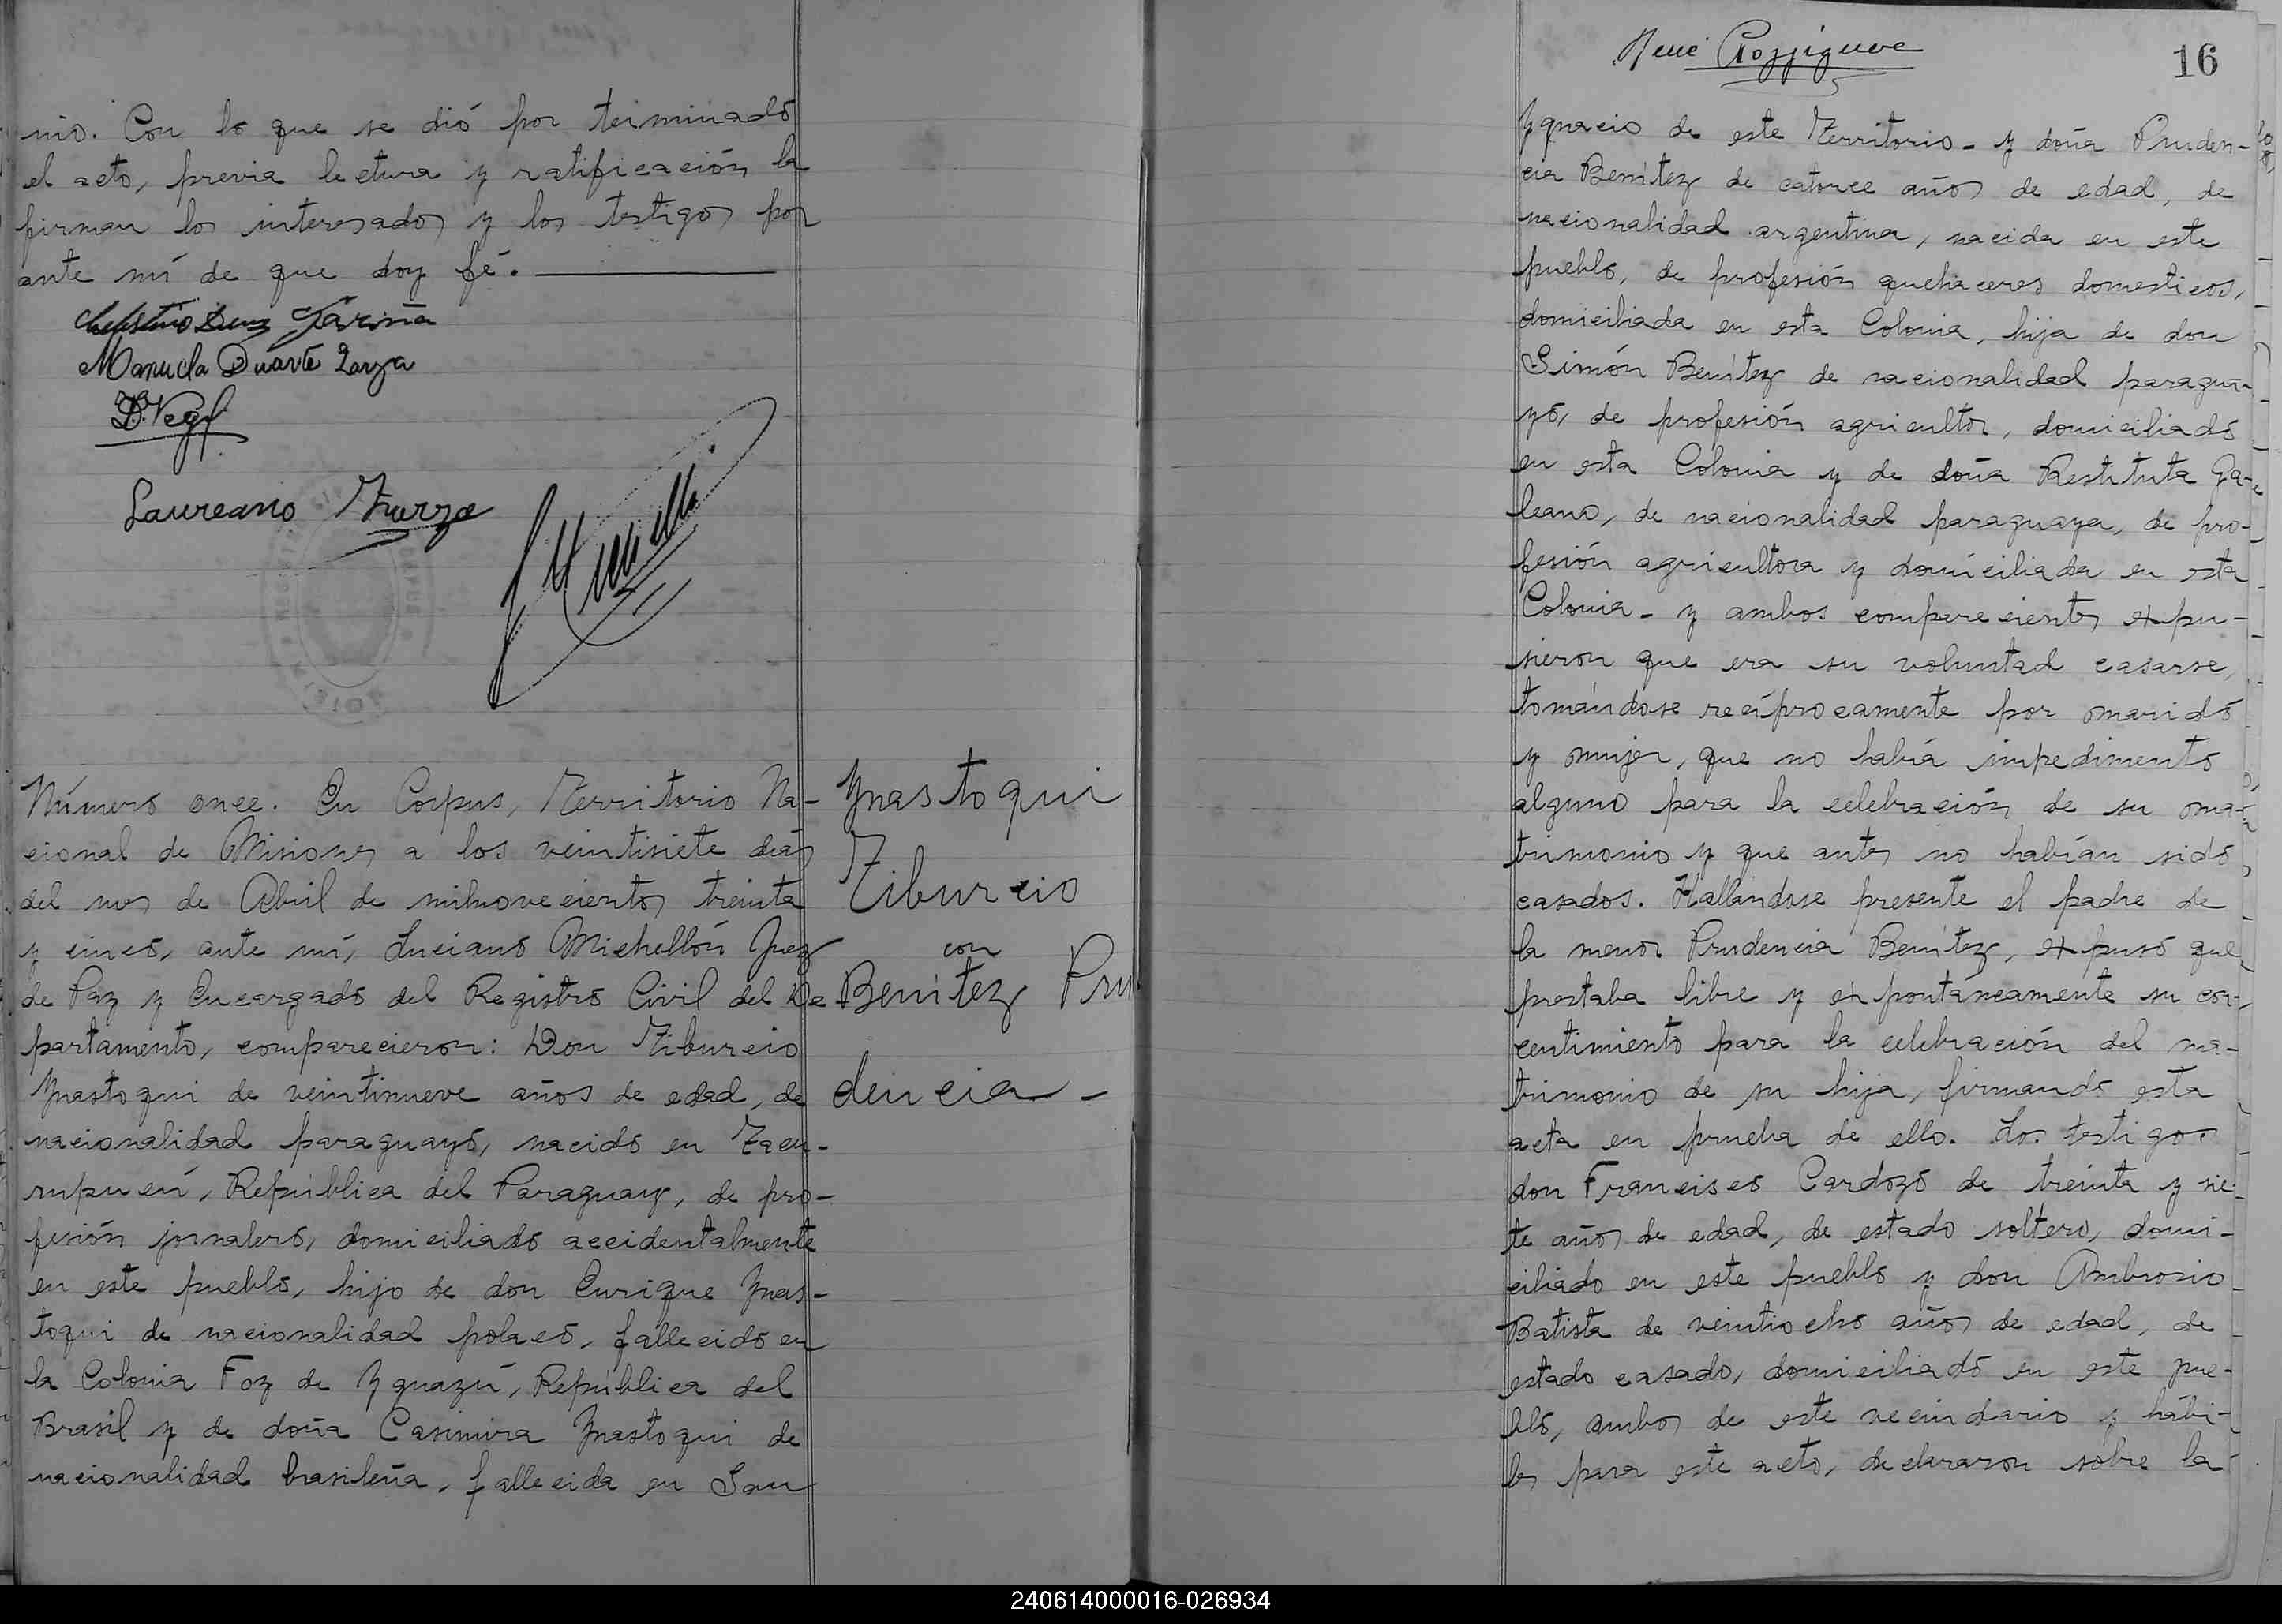 nio. Con lo que se dió por terminado
el acto, previa lectura y ratificación la
firman los interesados y los testigos por
ante mí de que doy fé.
Manuela Duarte
Laureano
Número once. En Corpus, Territorio Na-
cional de Misiones a los veintisiete días
del mes de Abril de milnovecientos treinta
y cinco, ante mí, Luciano Michellón Juez
de Paz y Encargado del Registro Civil del De
partamento, comparecieron: Don Tiburcio
Ynastoqui de veintinueve años de edad, de
nacionalidad paraguayo, nacido en Tacu-
rupucú, República del Paraguay, de pro-
fesión jornalero, domiciliado accidentalmente
en este pueblo, hijo de don Enrique Ynas-
toqui de nacionalidad polaco, fallecido en
la Colonia Foz de Yguazú, República del
Brasil y de doña Casimira Ynastoqui de
nacionalidad brasileña, fallecida en San
Ynastoqui
Tiburcio
con
Benítez Pru
dencia-
René
16
Ygnacio de este Territorio- y doña Pruden-
cia Benítez de catorce años de edad, de
nacionalidad argentina, nacida en este
pueblo, de profesión quehaceres domesticos,
domiciliada en esta Colonia, hija de don
Simón Benítez de nacionalidad paragua-
yo, de profesión agricultor, domiciliado
en esta Colonia y de doña Restituta Ga-
leano, de nacionalidad paraguaya, de pro-
fesión agricultora y domiciliada en esta
Colonia- y ambos comparecientes expu-
sieron que era su voluntad casarse,
tomándose recíprocamente por marido
y mujer, que no había impedimento
alguno para la celebración de su ma-
trimonio y que antes no habían sido
casados. Hallandose presente el padre de
la menor Prudencia Benítez, expuso que
prestaba libre y expontáneamente su con-
centimiento para la celebración del ma-
trimonio de su hija, firmando esta
acta en prueba de ello. Los testigos
don Francisco Cardozo de treinta y sie-
te años de edad, de estado soltero, domi-
ciliado en este pueblo y don Ambrosio
Batista de veintiocho años de edad, de
estado casado, domiciliado en este pue-
blo, ambos de este vecindario y hábi-
les para este acto, declararon sobre la
240614000016-026934